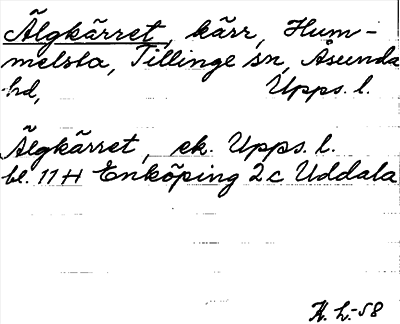 Älgkärret, kärr, Hum-
melsta, Tillinge sn, Åsunda
hd, Upps. l.
Älgkärret, ek. Upps. l.
bl. 11 H Enköping 2 c Uddala
K. L. -58